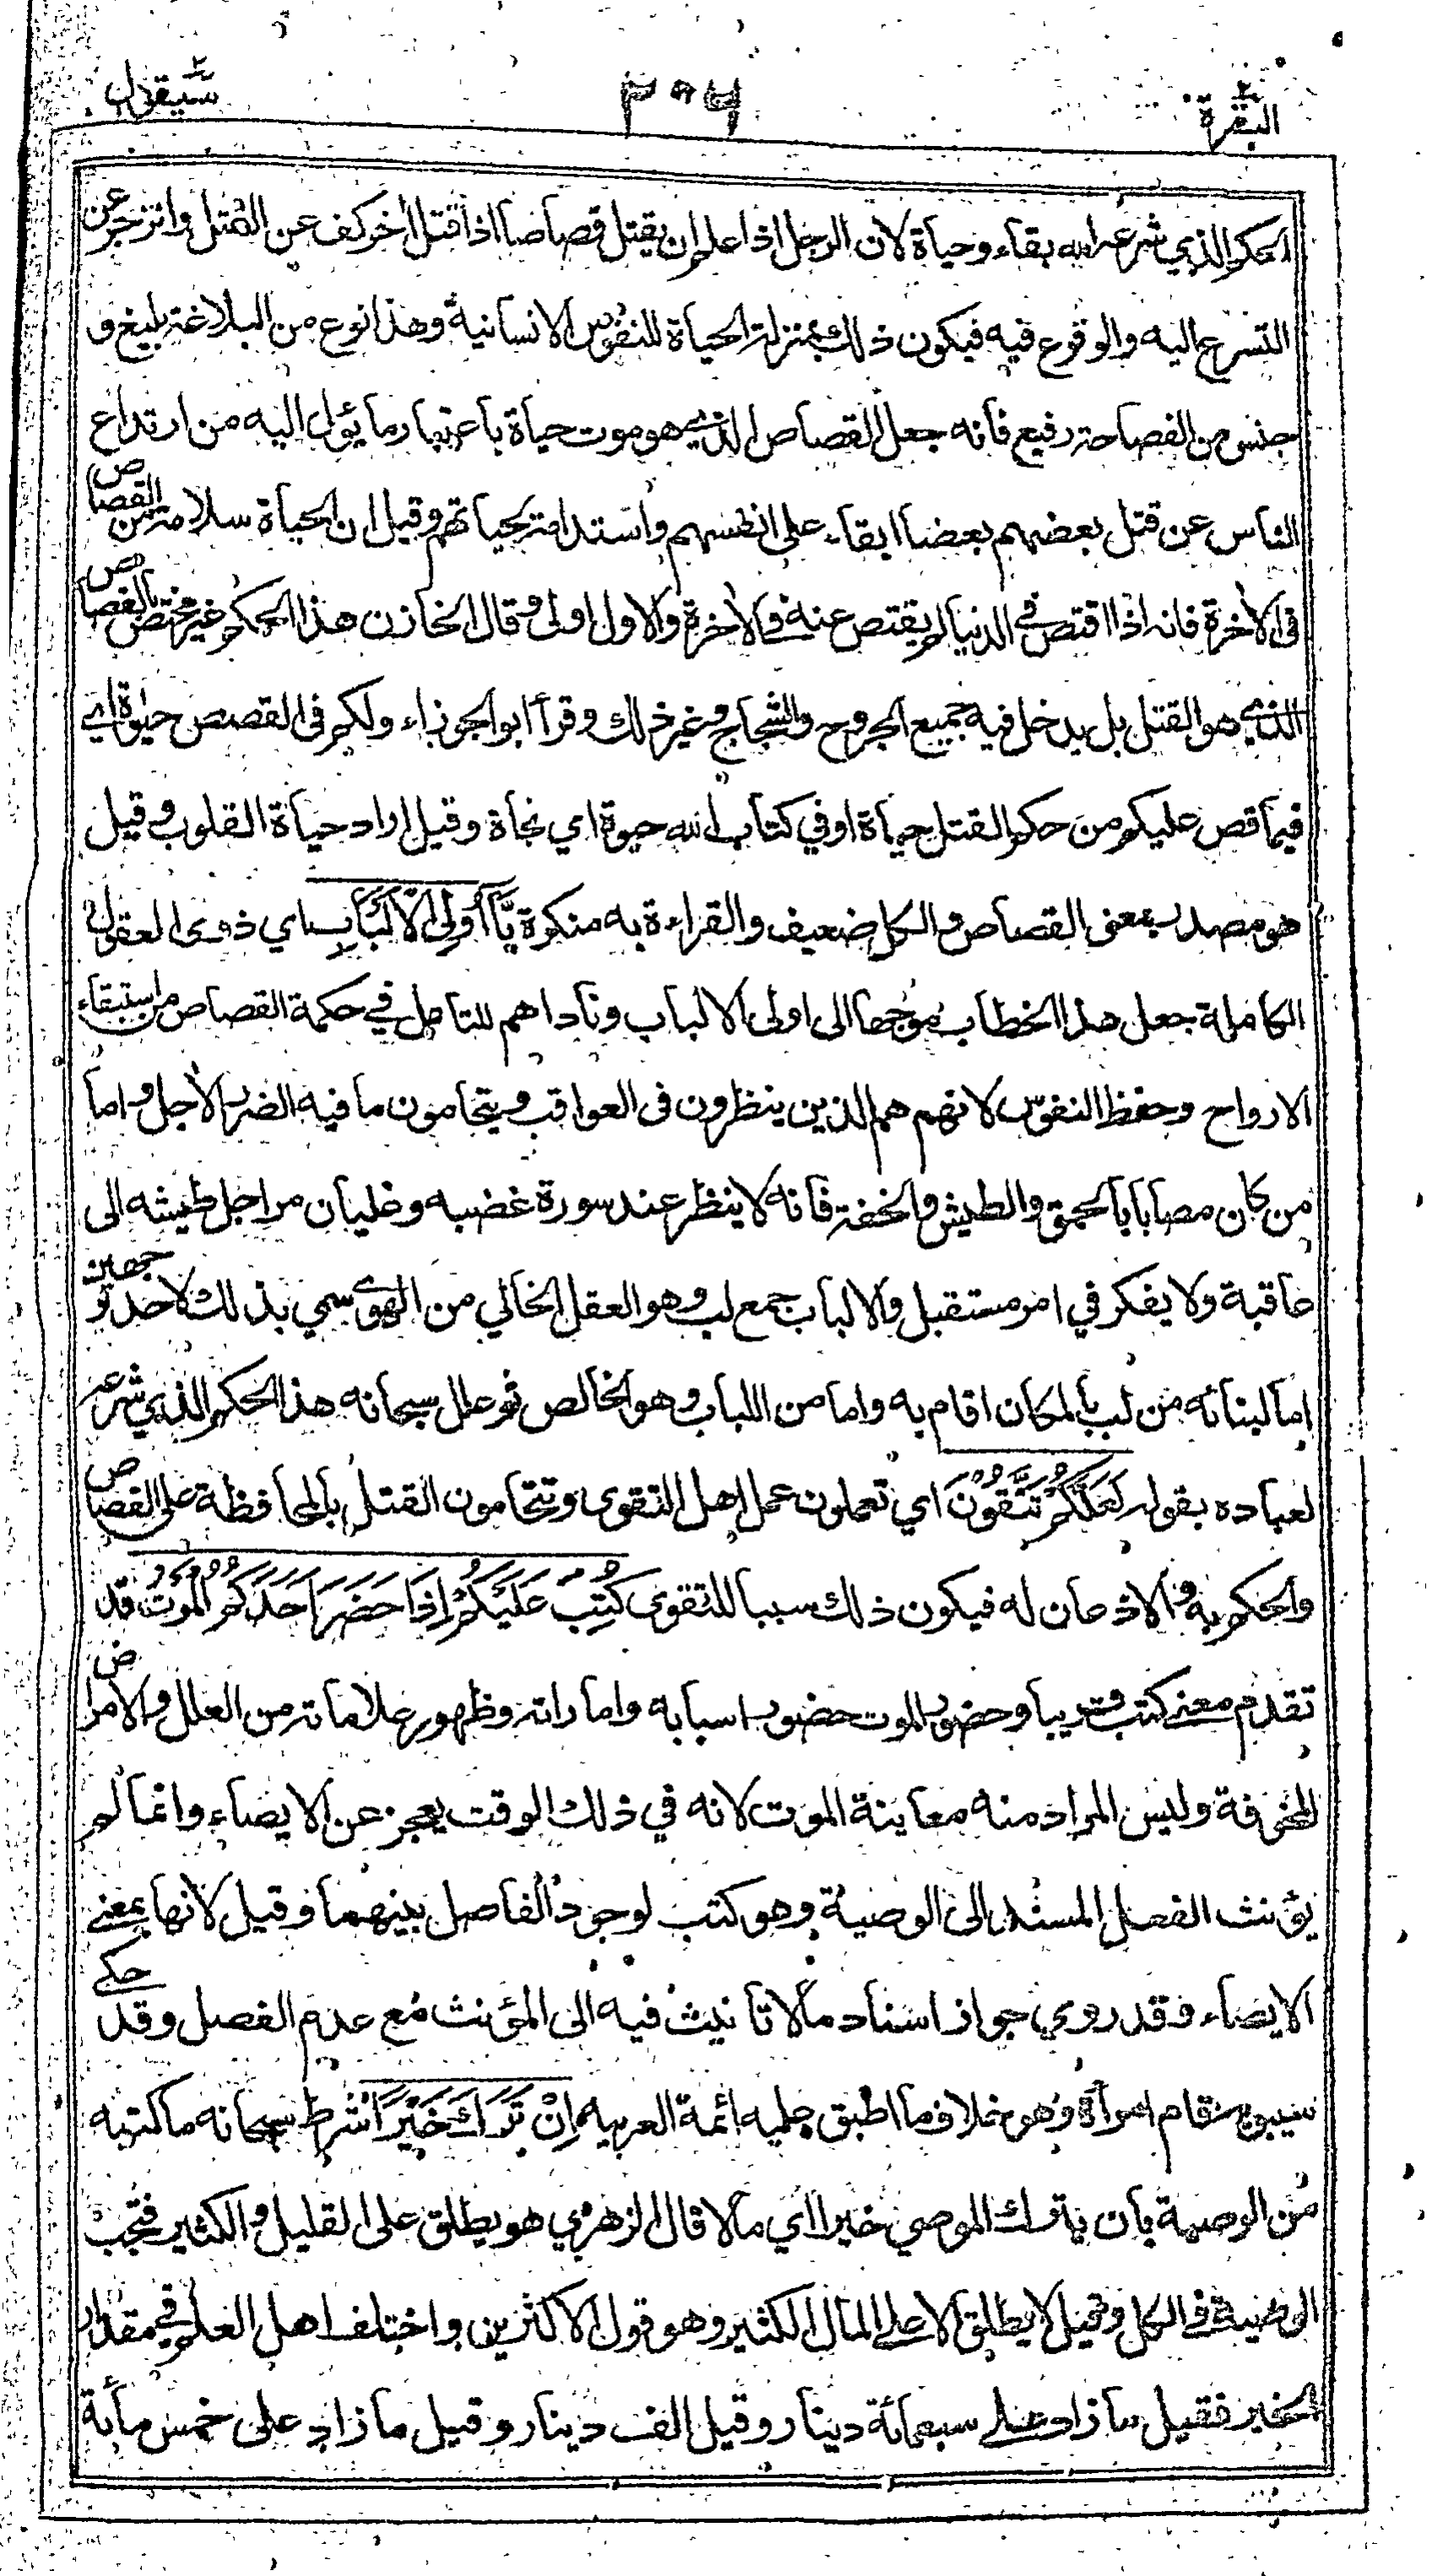 البقرة ٢
سيقول ٢
الحكم الذي شرعه الله بقاء وحياة لان الرجل اذا علم ان يقتل قصاصا اذا قتل اخر كف عن القتل وانزجر عن
التسرع اليه والوقوع فيه فيكون ذلك بمنزلة الحياة للنفوس الانسانية وهذا نوع من البلاغة بليغ و
جنس من الفصاحة رفيع فانه جعل القصاص الذي هو موت حياة باعتبار ما يؤل اليه من ارتداع
الناس عن قتل بعضهم بعضا ابقاء على انفسهم واستدامة لحياتهم وقيل ان الحياة سلامة من القصاص
في الأخرة فانه اذا اقتص في الدنيا لم يقتص عنه في الأخرة والاول اولى وقال الخازن هذا الحكم غير مختص بالقصاص
الذي هو القتل بل يدخل فيه جميع الجروح والشجاج وغير ذلك وقرأ ابو الجوزاء ولكم في القصص حيوة اي
فيما قص عليكم من حكم القتل حياة او في كتاب الله حيوة اي نجاة وقيل اراد حياة القلوب وقيل
هو مصدر بمعنى القصاص والكل ضعيف والقراءة به منكرة يَّا أُولِي الْأَلْبَابِ اي ذوى العقول
الكاملة جعل هذا الخطاب موجها الى اولى الالباب وناداهم للتامل في حكمة القصاص من استبقاء
الارواح وحفظ النفوس لانهم هم الذين ينظرون فى العواقب ويتحامون ما فيه الضرر الأجل واما
من كان مصابا بالحمق والطيش والخفة فانه لا ينظر عند سورة غضبه وغليان مراجل طيشه الى
عاقبة ولا يفكر في امر مستقبل والالباب جمع لب وهو العقل الخالي من الهوى سمي بذلك لاحد توجهين
اما لبنائه من لب بالمكان اقام به واما من اللباب وهو الخالص ثم علل سبحانه هذا الحكم الذي شرعه
لعباده بقوله لَعَلَّكُمْ تَتَّقُوْنَ اي تعملون عمل اهل التقوى وتتحامون القتل بالمحافظة على القصاص
والحكم به والاذعان له فيكون ذلك سببا للتقوى كُتِبَ عَلَيْكُمْ اِذَا حَضَرَ اَحَدَكُمُ الْمَوْتُ قد
تقدم معنى كتب قريبا وحضور الموت حضور اسبابه واماراته وظهور علاماته من العلل والامراض
المخوفة وليس المراد منه معاينة الموت لانه في ذلك الوقت يعجز عن الايصاء وانما لم
يؤنث الفعل المسند الى الوصية وهو كتب لوجود الفاصل بينهما وقيل لانها بمعنى
الايصاء وقد روي جواز اسناد مالا تانيث فيه الى المؤنث مع عدم الفصل وقد حكى
سيبويه قام امرأة وهو خلاف ما اطبق عليه ائمة العربيه اِنْ تَرَكَ خَيْرًا شرط سبحانه ما كتبه
من الوصية بان يترك الموصي خيرا اي مالا قال الزهري هو يطلق على القليل والكثير فتجب
الوصية في الكل وقيل لا يطلق الا على المال الكثير وهو قول الاكثرين واختلف اهل العلم في مقدار
الخير فقيل ما زاد على سبعمائة دينار وقيل الف دينار وقيل ما زاد على خمس مأية